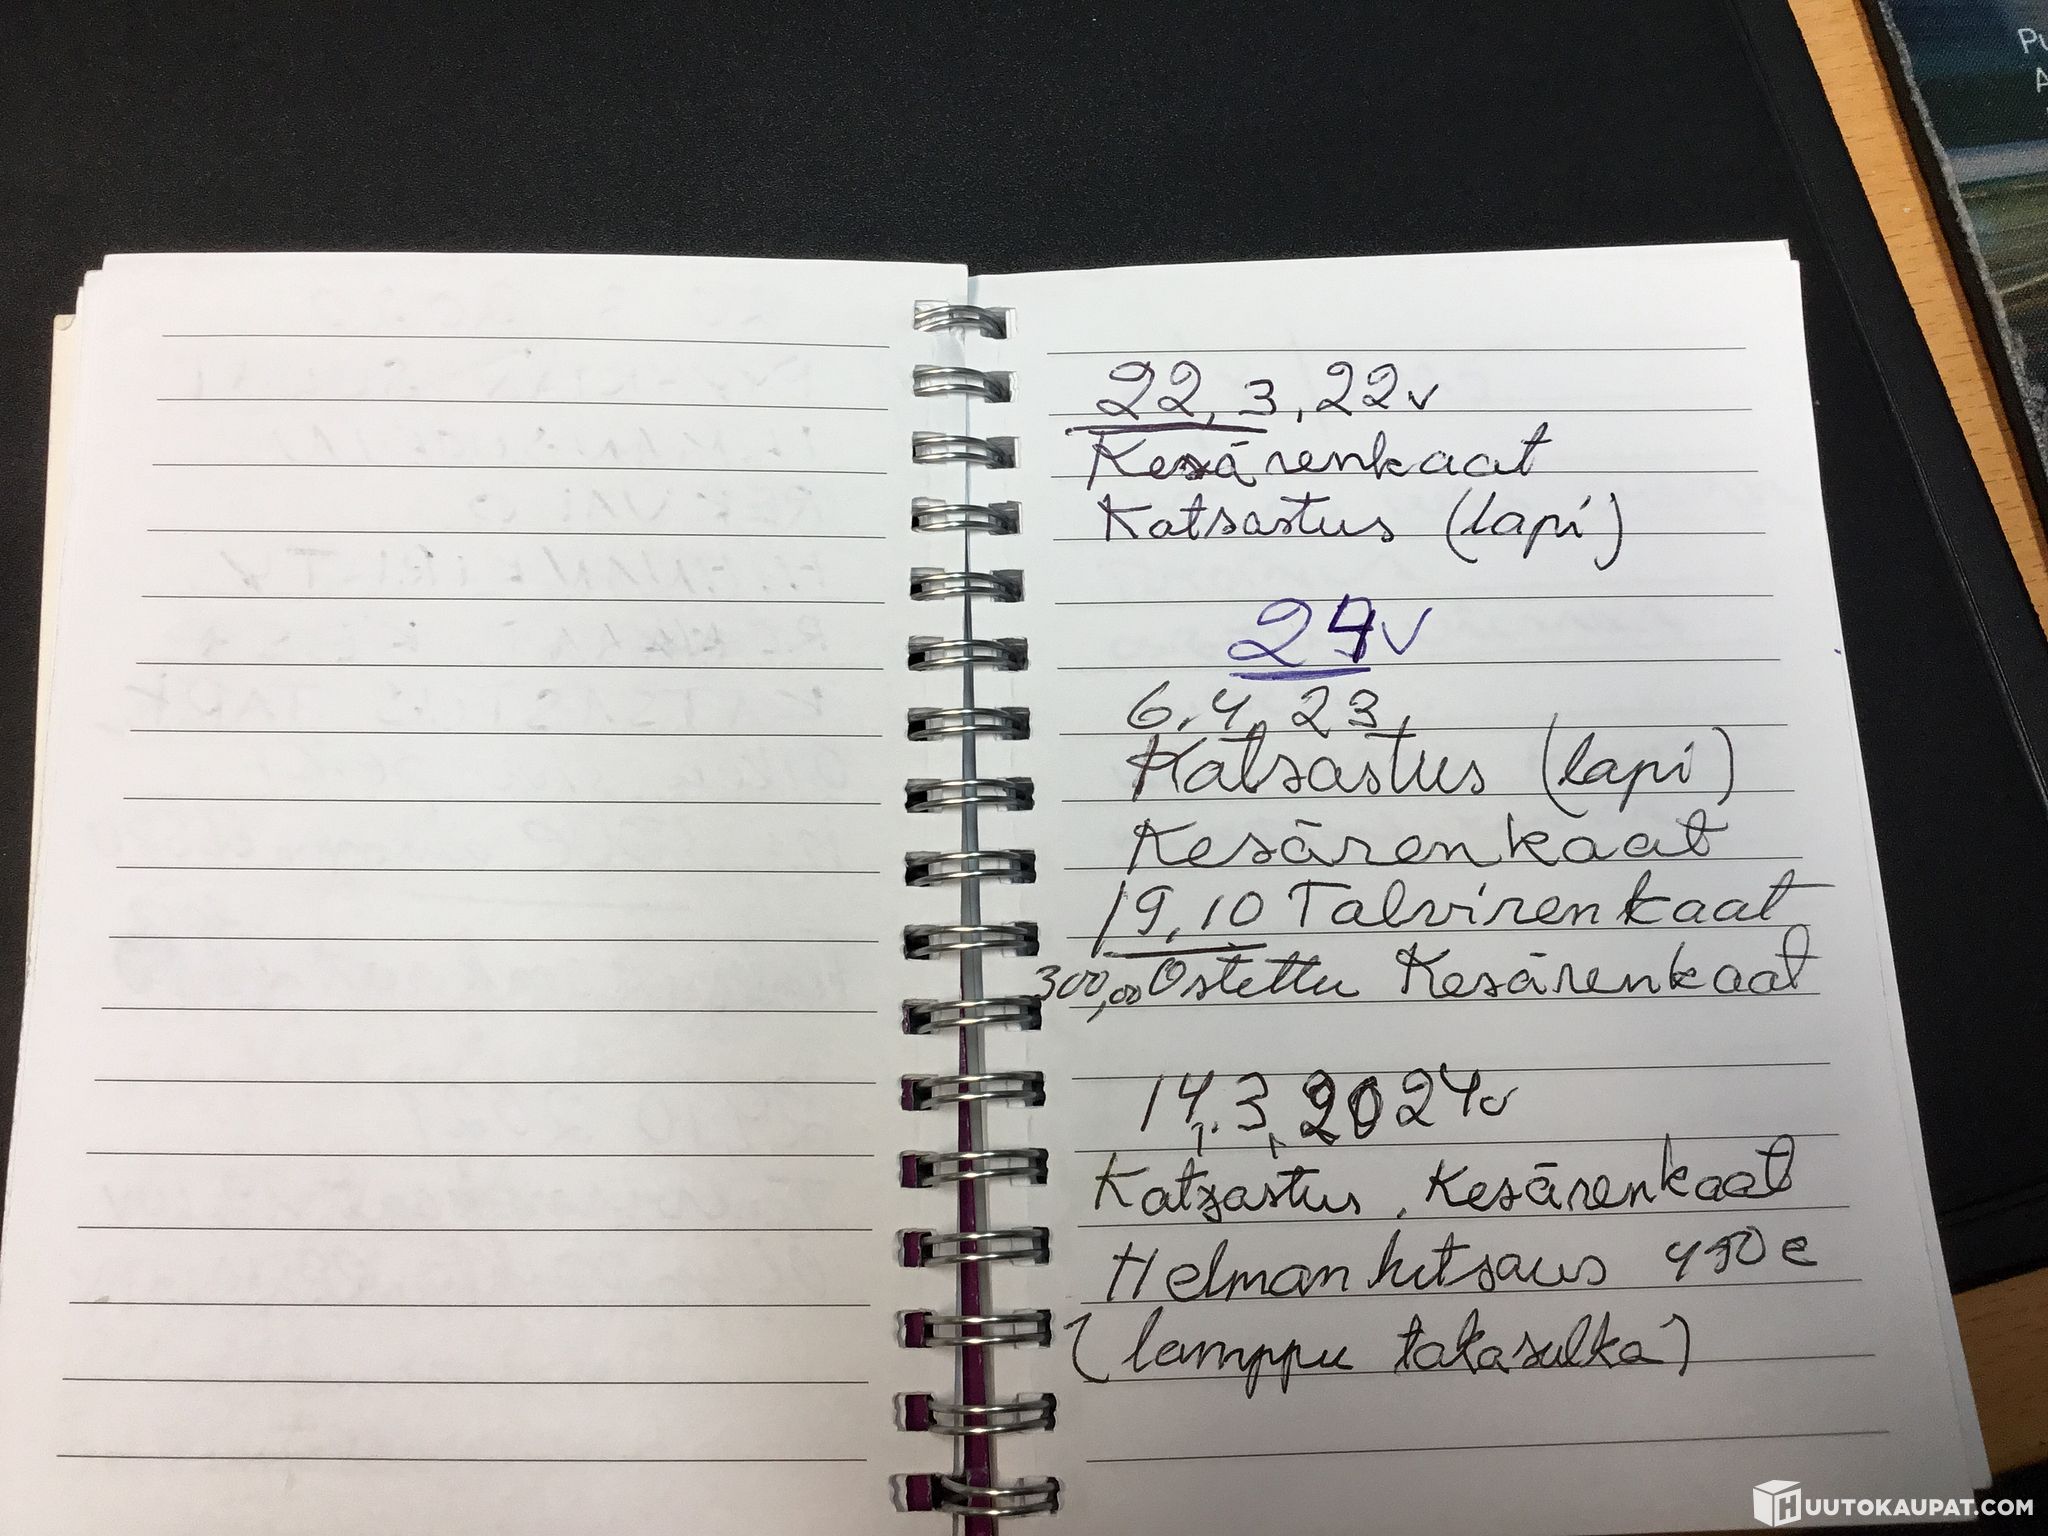 22.3.22v
Kesärenkaat
Katsastus (lapi)
29v
6.4.23
Katsastus (lapi)
Kesärenkaat
19,10 Talvirenkaat
300,00 Ostettu Kesärenkaat
14.3.2024v
Katsastus, Kesärenkaat
Helman hitsaus 450 e
(lamppu takasulka)
Pu
A
HUUTOKAUPAT.COM